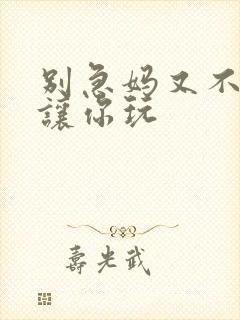 别急妈又不
讓你玩
壽光武